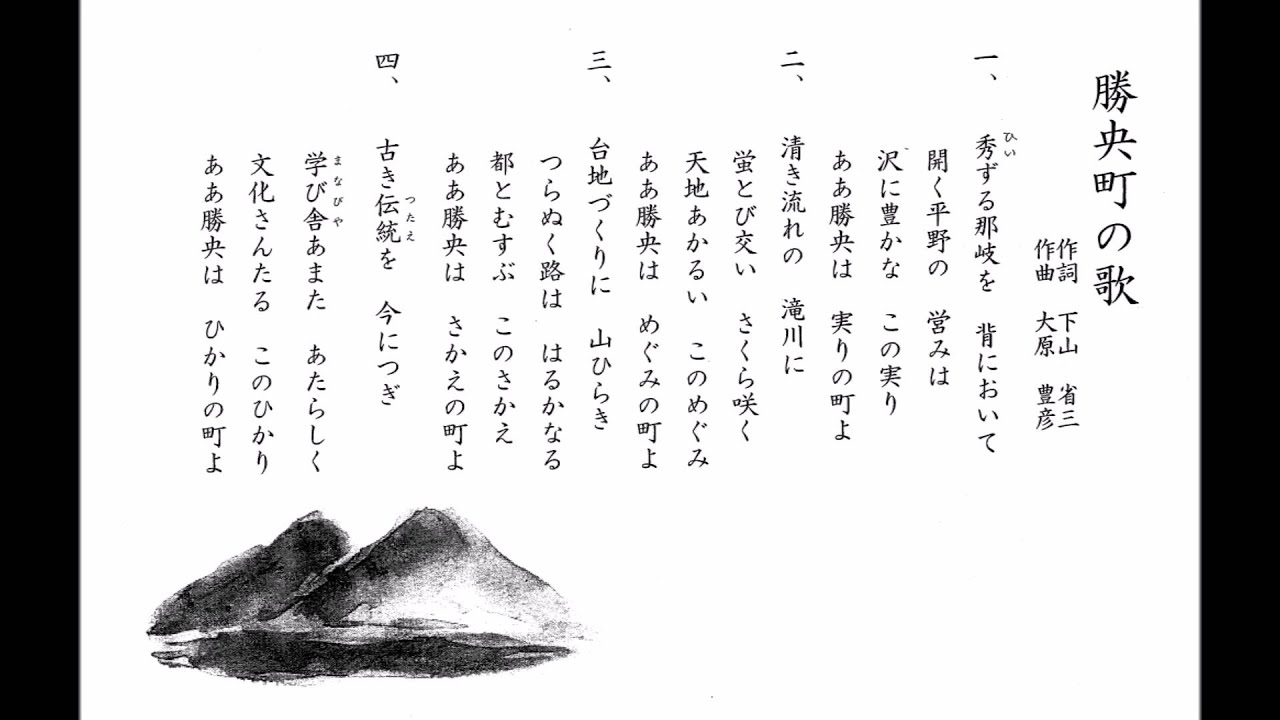 勝央町の歌
作詞 下山 省三
作曲 大原 豊彦
一、 秀ずる那岐を 背において
ひい
開く平野の 営みは
沢に豊かな この実り
ああ勝央は 実りの町よ
二、 清き流れの 滝川に
蛍とび交い さくら咲く
天地あかるい このめぐみ
ああ勝央は めぐみの町よ
三、 台地づくりに 山ひらき
つらぬく路は はるかなる
都とむすぶ このさかえ
ああ勝央は さかえの町よ
四、 古き伝統を 今につぎ
つたえ
学び舎あまた あたらしく
まなびや
文化さんたる このひかり
ああ勝央は ひかりの町よ